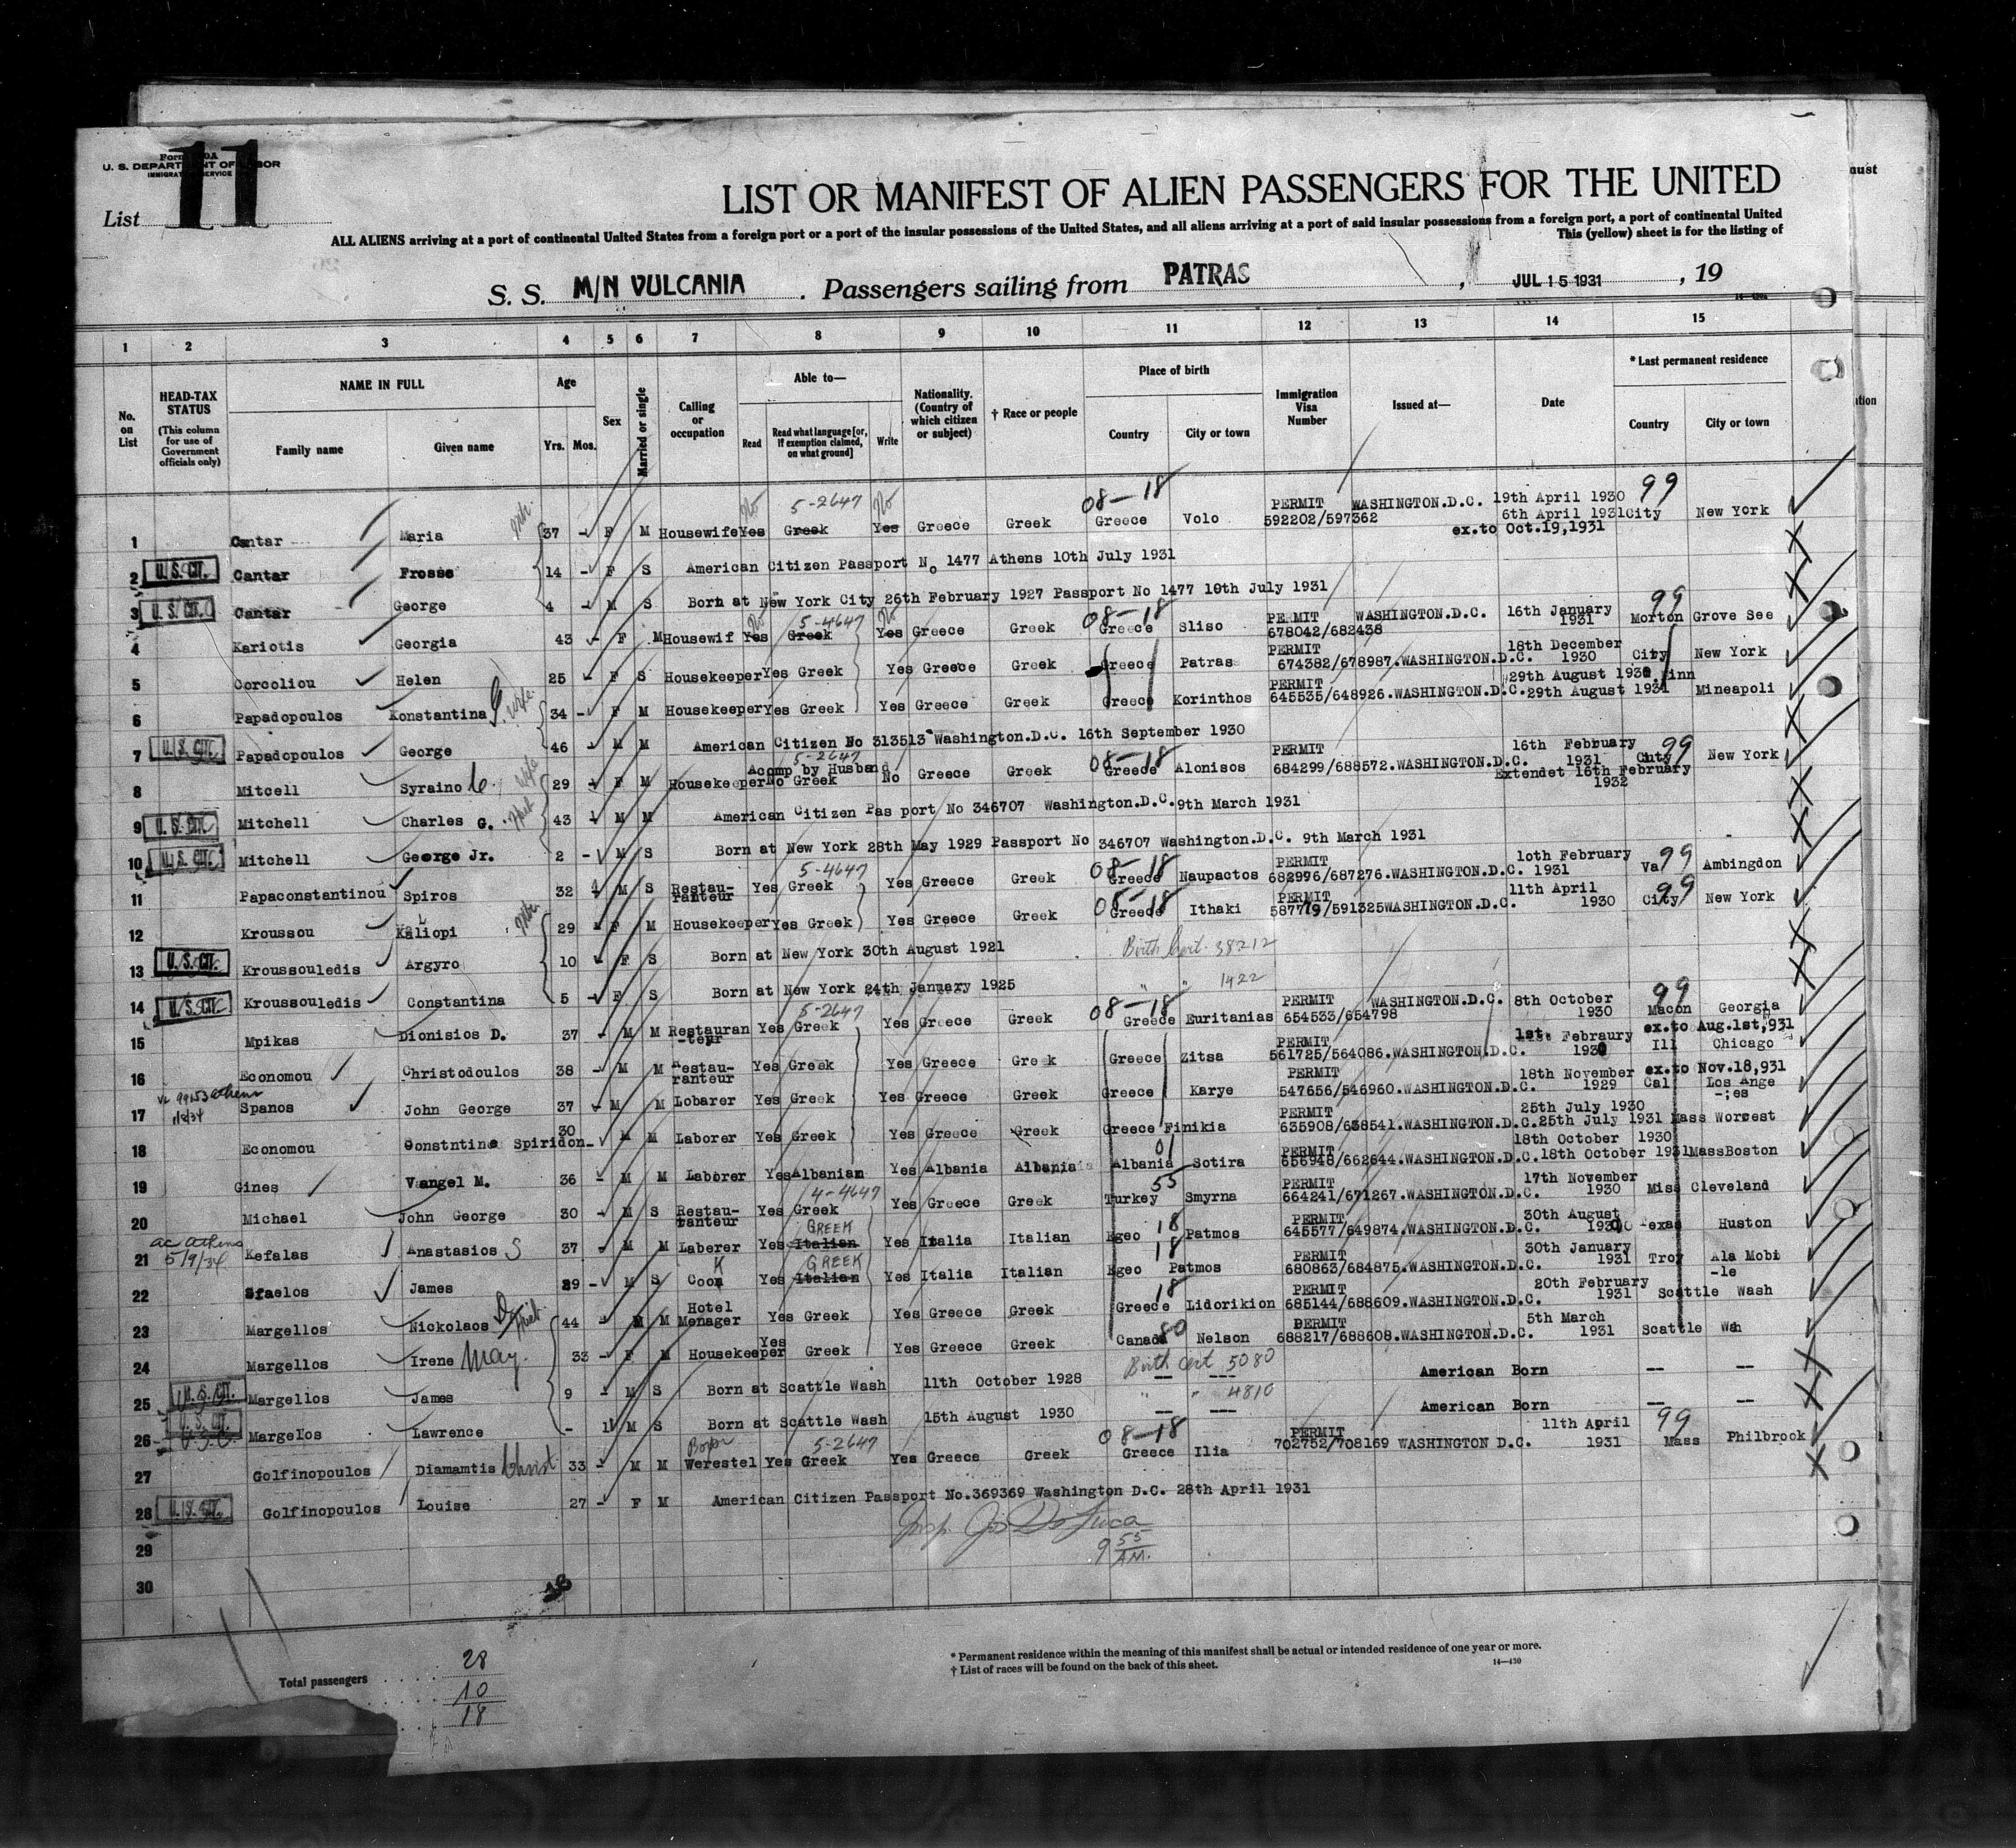 11
Form
U. S. DEPARTMENT OF LABOR
IMMIGRATION SERVICE
List
LIST OR MANIFEST OF ALIEN PASSENGERS FOR THE UNITED
ALL ALIENS arriving at a port of continental United States from a foreign port or a port of the insular possessions of the United States, and all aliens arriving at a port of said insular possessions from a foreign port, a port of continental United
This (yellow) sheet is for the listing of
S. S. M/N VULCANIA . Passengers sailing from PATRAS , JUL 15 1931 , 19
1 2 3 4 5 6 7 8 9 10 11 12 13 14 15
No. on List
HEAD-TAX STATUS (This column for use of Government officials only)
NAME IN FULL Family name Given name
Age Yrs. Mos.
Sex
Married or single
Calling or occupation
Able to— Read Read what language [or, if exemption claimed, on what ground] Write
Nationality. (Country of which citizen or subject)
† Race or people
Place of birth Country City or town
Immigration Visa Number
Issued at—
Date
* Last permanent residence Country City or town
5-2647 08-18 99
1 Cantar Maria 37 - F M Housewife Yes No Greek Yes No Greece Greek Greece Volo PERMIT 592202/597362 WASHINGTON.D.C. 19th April 1930 6th April 1931 ex.to Oct.19,1931 City New York
2 U. S. CIT. Cantar Frosso 14 - F S American Citizen Passport No 1477 Athens 10th July 1931
3 U. S. CIT. Cantar George 4 - M S Born at New York City 26th February 1927 Passport No 1477 10th July 1931
5-4647 08-18 99
4 Kariotis Georgia 43 - F M Housewif Yes No Greek Yes No Greece Greek Greece Sliso PERMIT 678042/682438 WASHINGTON.D.C. 16th January 1931 Morton Grove See
5 Corcoliou Helen 25 - F S Housekeeper Yes Greek Yes Greece Greek Greece Patras PERMIT 674382/678987.WASHINGTON.D.C. 18th December 1930 City New York
6 Papadopoulos Konstantina G wife 34 - F M Housekeeper Yes Greek Yes Greece Greek Greece Korinthos PERMIT 645535/648926.WASHINGTON.D.C. 29th August 1930 29th August 1931 Minn Mineapoli
7 U. S. CIT. Papadopoulos George 46 - M M American Citizen No 313513 Washington.D.C. 16th September 1930
5-2647 08-18 99
8 Mitcell Syraino C. wife 29 - F M Housekeeper Acomp by Husband No Greek No Greece Greek Greece Alonisos PERMIT 684299/688572.WASHINGTON.D.C. 16th February 1931 Extendet 16th February 1932 City New York
9 U. S. CIT. Mitchell Charles G. 43 - M M American Citizen Pas port No 346707 Washington.D.C. 9th March 1931
10 U. S. CIT. Mitchell George Jr. 2 - M S Born at New York 28th May 1929 Passport No 346707 Washington.D.C. 9th March 1931
5-4647 08-18 99
11 Papaconstantinou Spiros 32 M S Restau- ranteur Yes Greek Yes Greece Greek Greece Naupactos PERMIT 682996/687276.WASHINGTON.D.C. 10th February 1931 Va Ambingdon
08-18 99
12 Kroussou Kaliopi 29 - F M Housekeeper Yes Greek Yes Greece Greek Greece Ithaki PERMIT 587779/591325WASHINGTON.D.C. 11th April 1930 City New York
13 U. S. CIT. Kroussouledis Argyro 10 - F S Born at New York 30th August 1921 Birth Cert. 38212
14 U. S. CIT. Kroussouledis Constantina 5 - F S Born at New York 24th January 1925 " " 1422
5-2647 08-18 99
15 Mpikas Dionisios D. 37 - M M Restauran -teur Yes Greek Yes Greece Greek Greece Euritanias PERMIT 654533/654798 WASHINGTON.D.C. 8th October 1930 Macon Georgia
16 Economou Christodoulos 38 - M M Restau- ranteur Yes Greek Yes Greece Greek Greece Zitsa PERMIT 561725/564086.WASHINGTON.D.C. 1st. Febraury 1930 ex.to Aug.1st,931 Ill Chicago
Athens 1/8/34
17 Spanos John George 37 - M M Lobarer Yes Greek Yes Greece Greek Greece Karye PERMIT 547656/546960.WASHINGTON.D.C. 18th November 1929 ex.to Nov.18,931 Cal Los Ange -;es
18 Economou Constntina Spiridon 30 - M M Laborer Yes Greek Yes Greece Greek Greece Finikia PERMIT 635908/638541.WASHINGTON.D.C. 25th July 1930 25th July 1931 Mass Worcest
19 Gines Vangel M. 36 - M M Laborer Yes Albanian Yes Albania Albania Albania 01 Sotira PERMIT 655948/662644.WASHINGTON.D.C. 18th October 1930 18th October 1931 Mass Boston
4-4647 55
20 Michael John George 30 - M S Restau- ranteur Yes Greek Yes Greece Greek Turkey Smyrna PERMIT 664241/671267.WASHINGTON.D.C. 17th November 1930 Miss Cleveland
ac Athens 5/9/34
21 Kefalas Anastasios S 37 - M M Laberer Yes Italian GREEK Yes Italia Italian Egeo 18 Patmos PERMIT 645577/649874.WASHINGTON.D.C. 30th August 1930 Texas Huston
22 Sfaelos James 29 - M S Cook Yes Italian GREEK Yes Italia Italian Egeo 18 Patmos PERMIT 680863/684875.WASHINGTON.D.C. 30th January 1931 Troy Ala Mobi -le
23 Margellos Nickolaos D 44 - M M Hotel Menager Yes Greek Yes Greece Greek Greece 18 Lidorikion PERMIT 685144/688609.WASHINGTON.D.C. 20th February 1931 Scattle Wash
24 Margellos Irene May. 33 - F M Housekeeper Yes Greek Yes Greece Greek Canada 80 Nelson PERMIT 688217/688608.WASHINGTON.D.C. 5th March 1931 Scattle Wsh
25 U. S. CIT. Margellos James 9 - M S Born at Scattle Wash 11th October 1928 Birth Cert 5080 -- --- American Born -- --
26 U. S. CIT. Margellos Lawrence - 1 M S Born at Scattle Wash 15th August 1930 " " 4810 -- --- American Born -- --
5-2647 08-18 99
27 Golfinopoulos Diamamtis Christ 33 - M M Werestel Yes Greek Yes Greece Greek Greece Ilia PERMIT 702752/708169 WASHINGTON D.C. 11th April 1931 Mass Philbrook
28 U. S. CIT. Golfinopoulos Louise 27 - F M American Citizen Passport No.369369 Washington D.C. 28th April 1931
Insp. Jos De Luca
29
9 55 AM.
30
Total passengers 28
10
18
* Permanent residence within the meaning of this manifest shall be actual or intended residence of one year or more.
† List of races will be found on the back of this sheet. 14—430